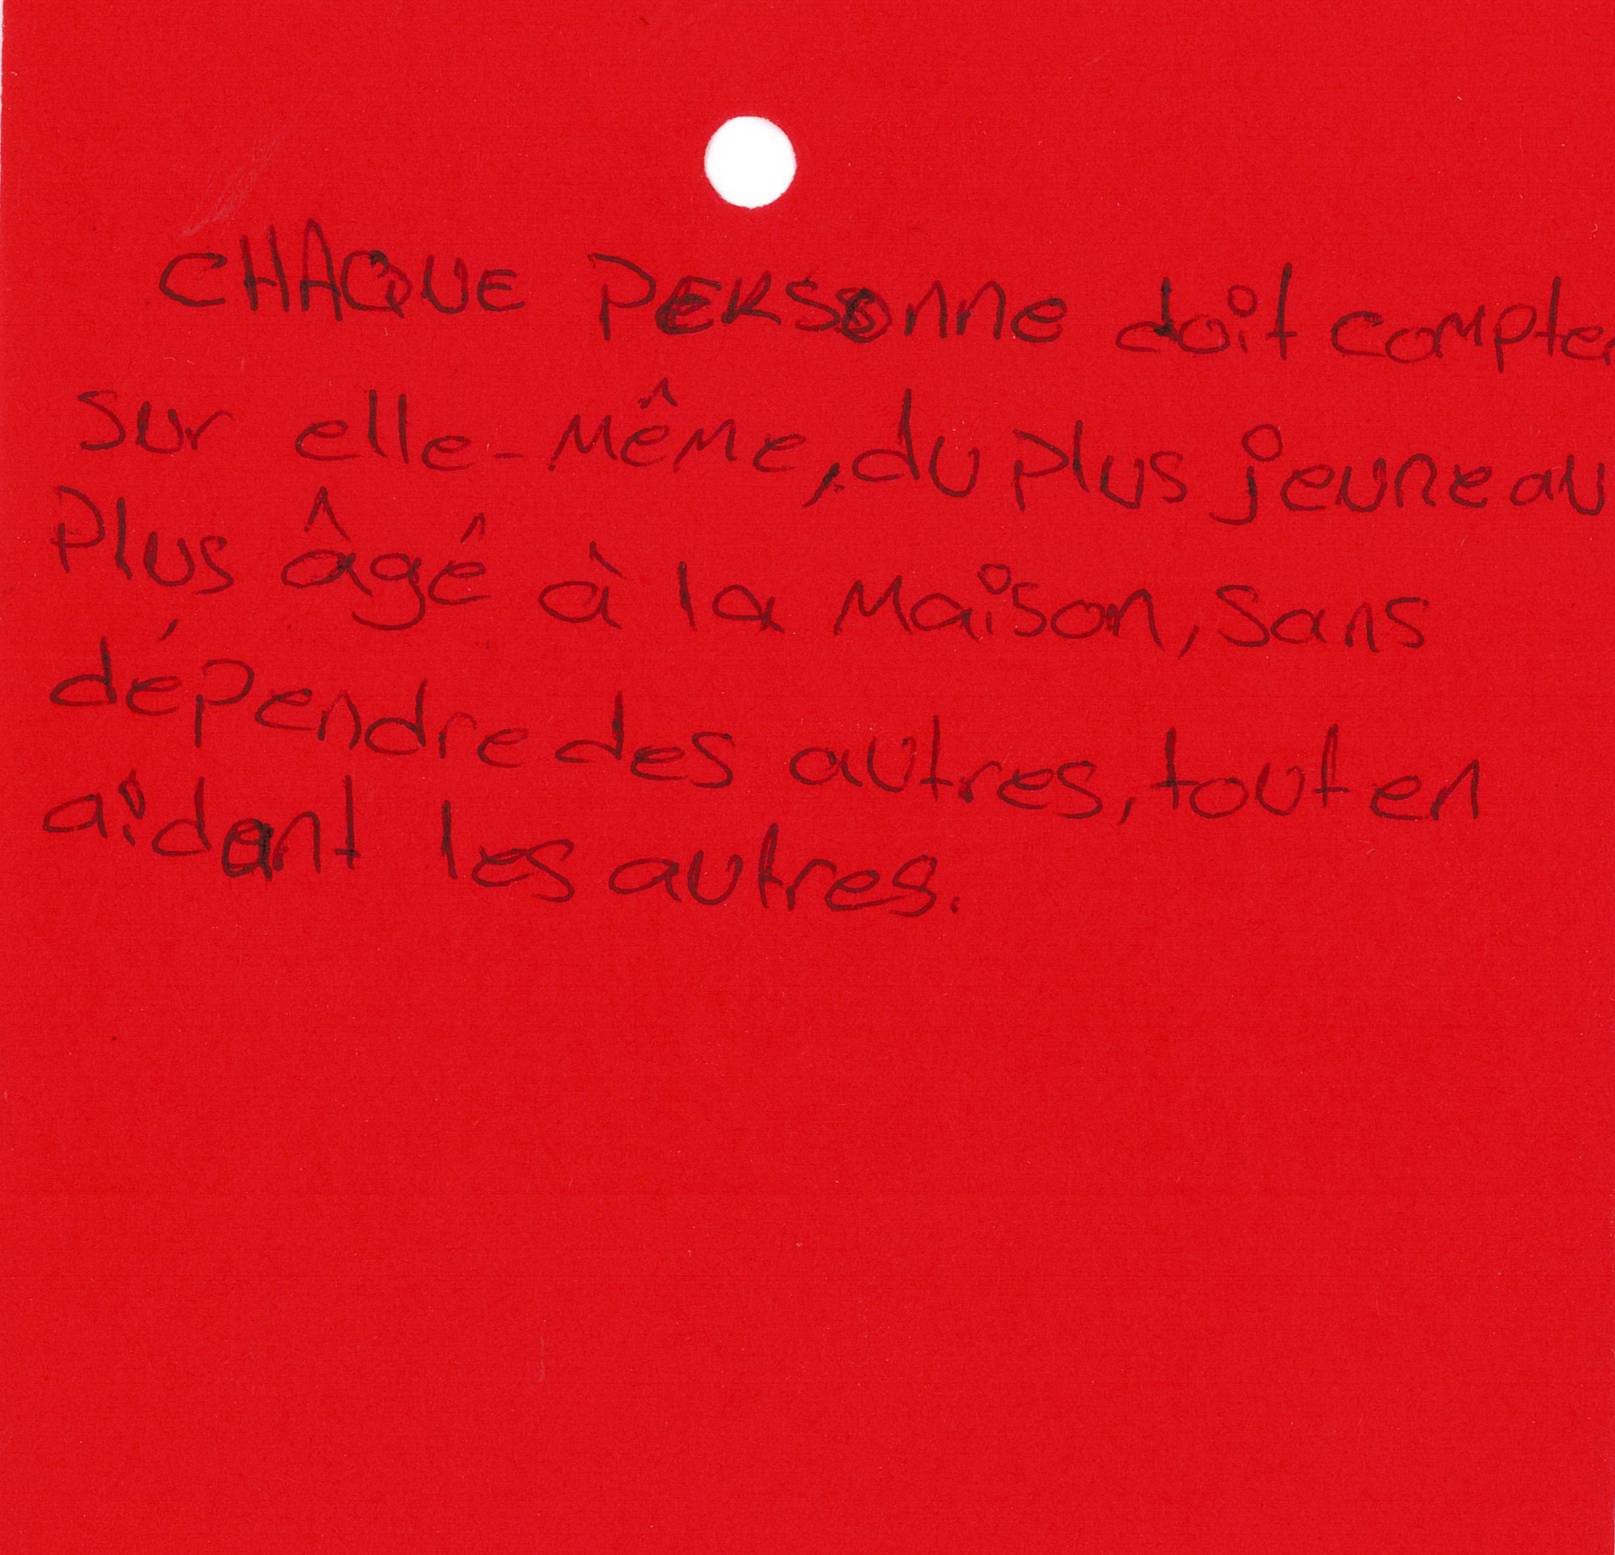 CHAQUE PERSONNE doit compter
sur elle-même, du plus jeune au
Plus âgé à la maison, sans
dépendre des autres, tout en
aidant les autres.